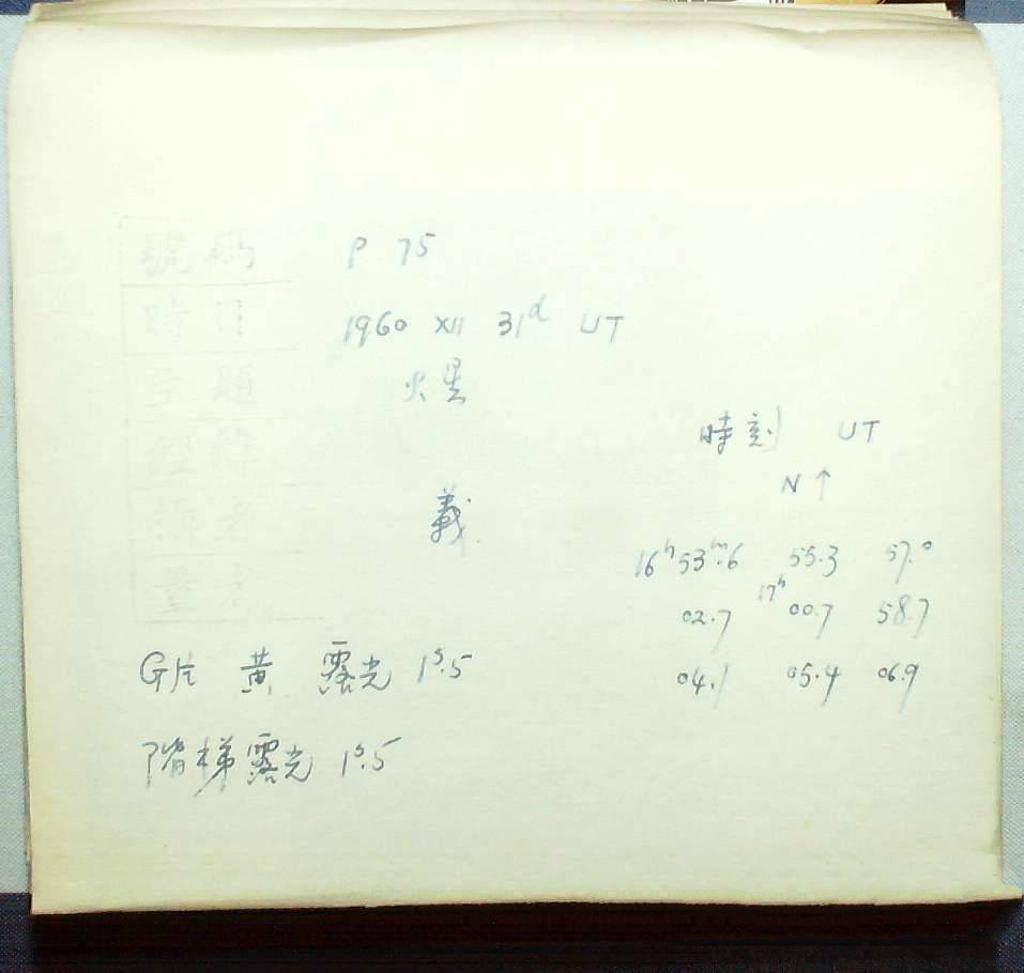 號碼 P 75
時日 1960 XII 31ᵈ UT
題 火星
時刻 UT
N↑
義
16ʰ53ᵐ.6 55.3 57.0
02.7 17ʰ00.7 58.7
04.1 05.4 06.9
G片 黄 露光 1ˢ.5
階梯露光 1ˢ.5